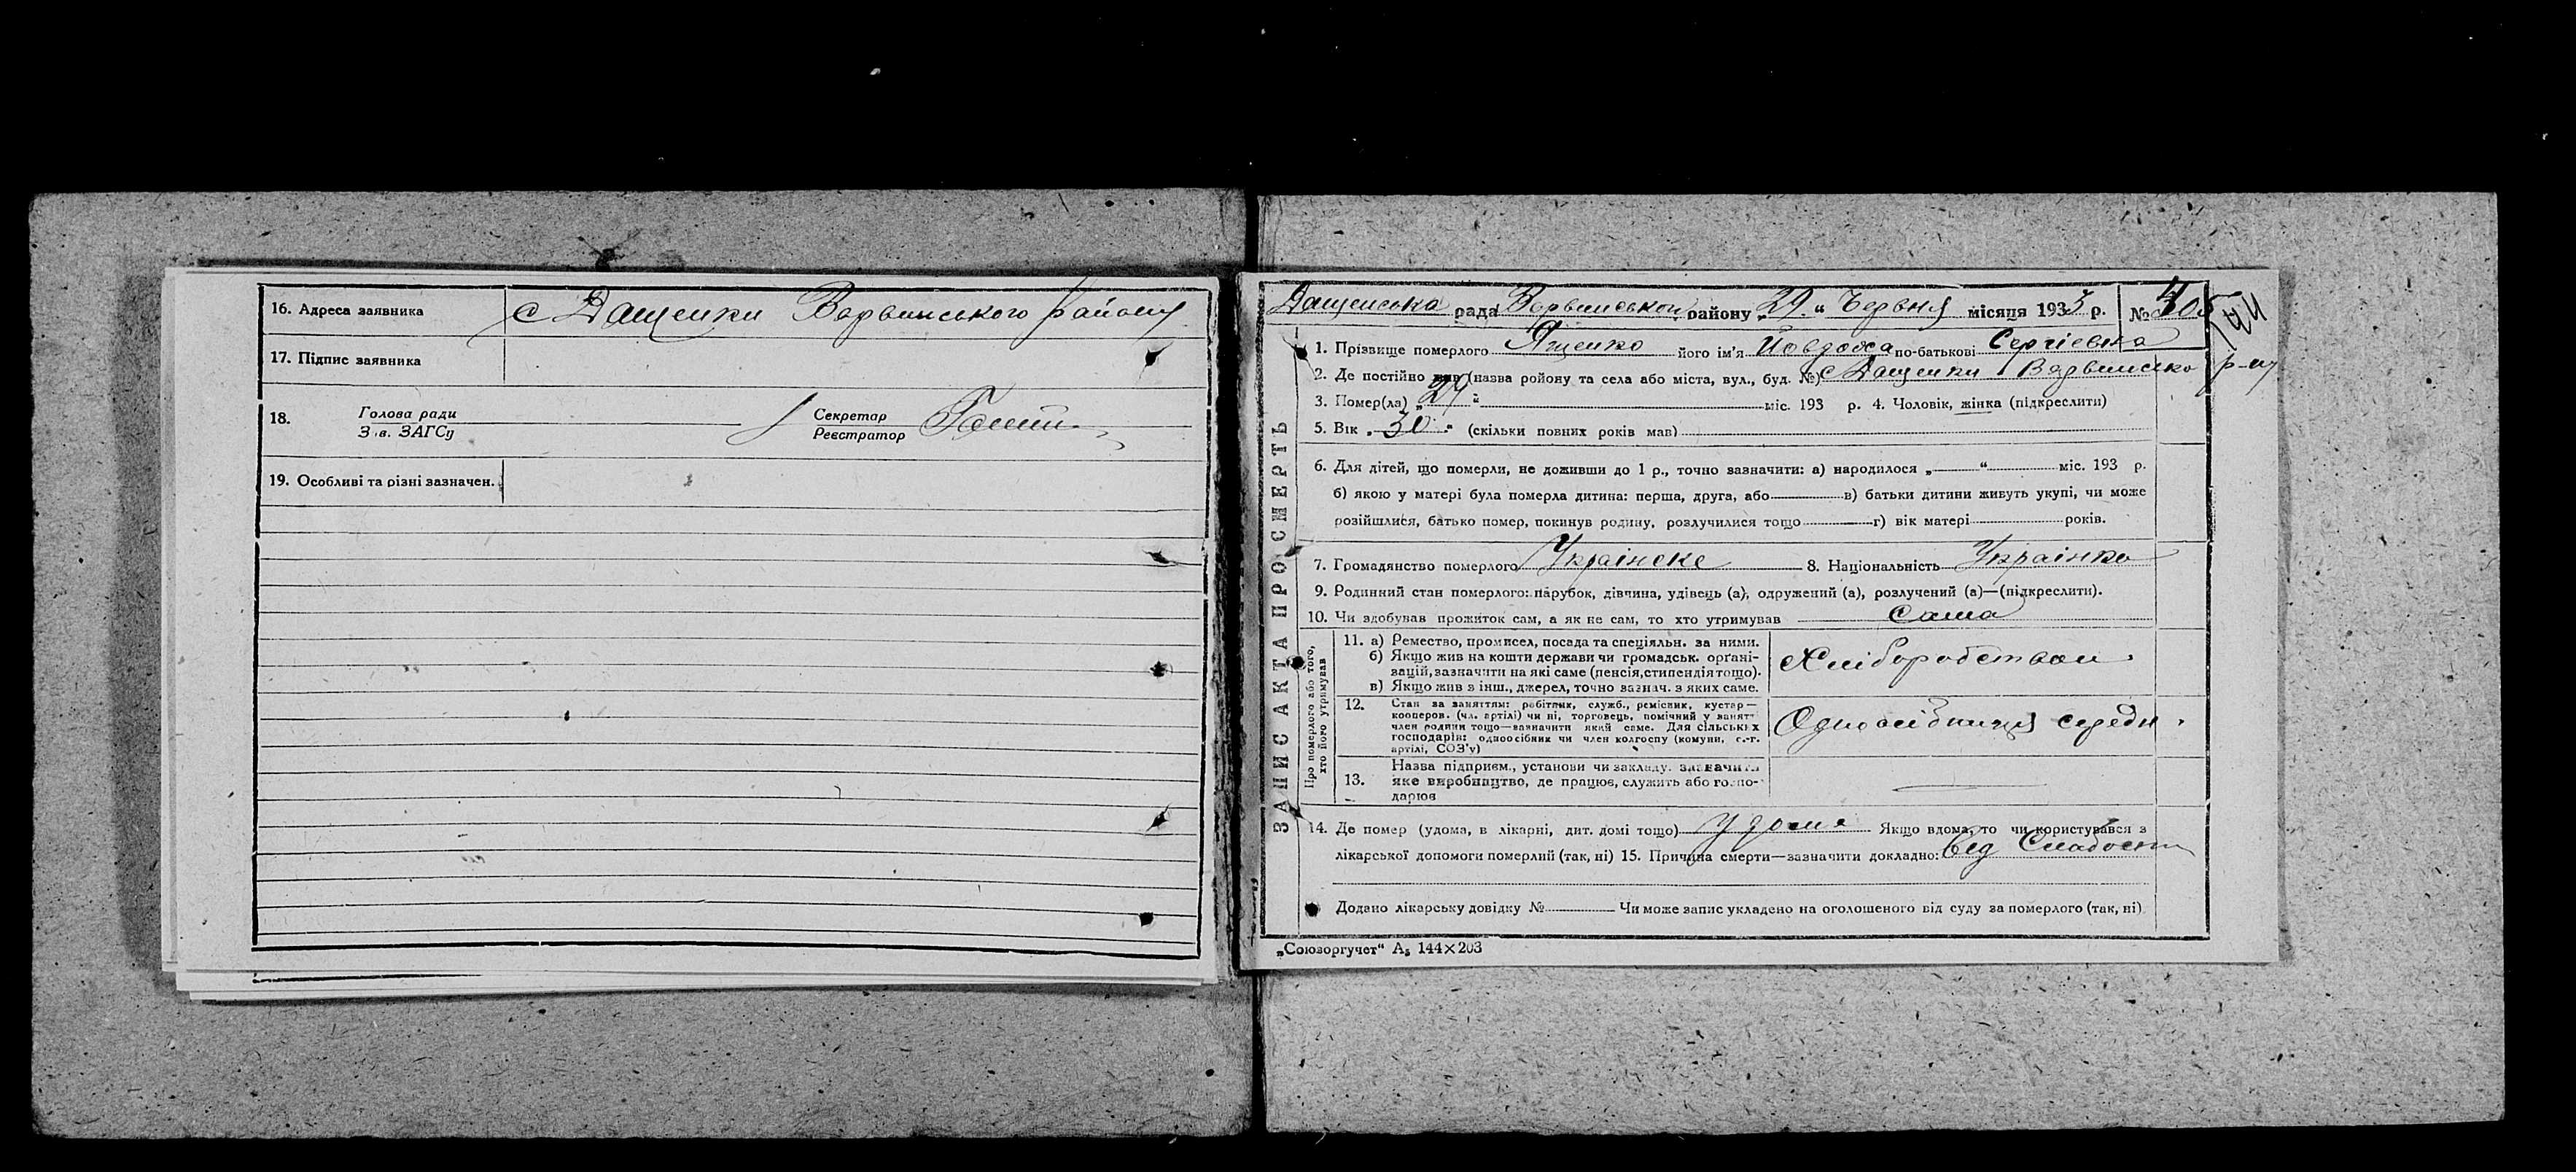 16. Адреса заявника с Дащенки Варвинського району
17. Підпис заявника
18. Голова ради Секретар
З.в. ЗАГСу Реєстратор
19. Особливі та різні зазначен.
Дащенська рада Варвинського району „29 “ Червня місяця 1933 р. № 105
1. Прізвище померлого Ященко його ім'я Йовдоха по-батькові Сергіевна
2. Де постійно жив (назва ройону та села або міста, вул., буд. №) с Дащенки Варвинсько р-ну
3. Помер(ла) „29 “ міс. 193 р. 4. Чоловік, жінка (підкреслити)
5. Вік „30“ (скільки повних років мав)
6. Для дітей, що померли, не доживши до 1 р., точно зазначити: а) народилося „ “ міс. 193 р.
б) якою у матері була померла дитина: перша, друга, або в) батьки дитини живуть укупі, чи може
розійшлися, батько помер, покинув родину, розлучилися тощо г) вік матері років.
7. Громадянство померлого Украінске 8. Національність Украінка
9. Родинний стан померлого: парубок, дівчина, удівець (а), одружений (а), розлучений (а)—(підкреслити).
10. Чи здобував прожиток сам, а як не сам, то хто утримував сама
ЗАПИС АКТА ПРО СМЕРТЬ
Про померлого або того,
хто його утримував
11. а) Ремество, промисел, посада та спеціяльн. за ними.
б) Якщо жив на кошти держави чи громадськ. орґані-
зацій, зазначити на які саме (пенсія, стипендія тощо).
в) Якщо жив з інш., джерел, точно зазнач. з яких саме.
Хліборобством
12. Стан за заняттям: робітник, служб., ремісник, кустар—
кооперов. (чл. артілі) чи ні, торговець, помічний у занятт
член родини тощо—зазначити який саме. Для сільських
господарів: одноосібник чи член колгоспу (комуни, с.-г.
артілі, СОЗ'у)
Одноосібниця середн.
13. Назва підприєм., установи чи закладу. зазначити
яке виробництво, де працює, служить або госпо-
дарює
14. Де помер (удома, в лікарні, дит. домі тощо) у дома Якщо вдома, то чи користувався з
лікарської допомоги померлий (так, ні) 15. Причина смерти—зазначити докладно: Від Слабости
Додано лікарську довідку № Чи може запис укладено на оголошеного від суду за померлого (так, ні)
„Союзоргучет“ А₅ 144×203